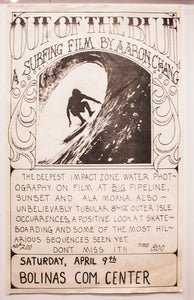 OUT OF THE BLUE
A SURFING FILM BY AARON CHANG
THE DEEPEST IMPACT ZONE WATER PHOT-
OGRAPHY ON FILM AT BIG PIPELINE,
SUNSET AND ALA MOANA. ALSO -
UNBELIEVABLY TUBULAR OUTER ISLE
OCCURRENCES, A POSITIVE LOOK AT SKATE-
BOARDING AND SOME OF THE MOST HIL-
ARIOUS SEQUENCES SEEN YET.
DON'T MISS IT!! TIME 8:00
SATURDAY, APRIL 9TH
BOLINAS COM. CENTER